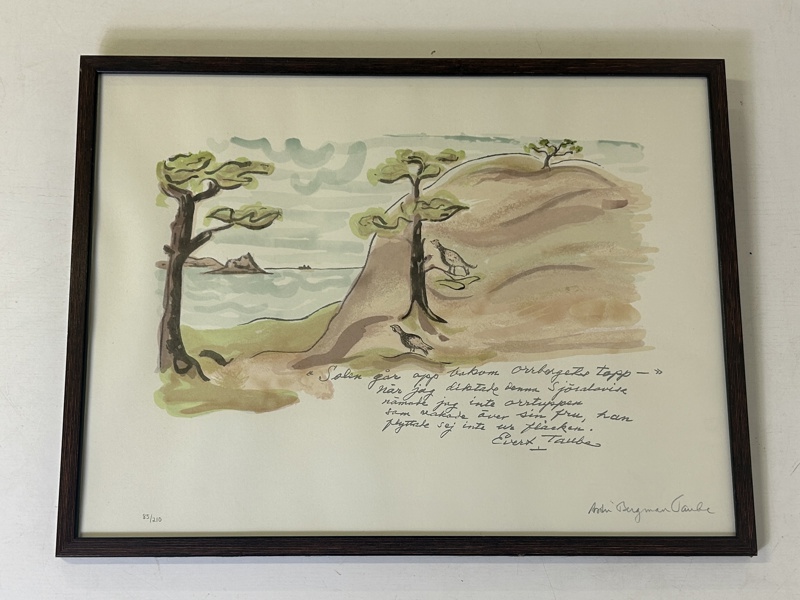 "Solen går opp bakom orrbergets topp — "
när jag diktade denna Sjösalavisa
nämnde jag inte orrtuppen
som vakade över sin fru, han
flyttade sej inte ur fläcken.
Evert Taube
83/210
Astri Bergman Taube